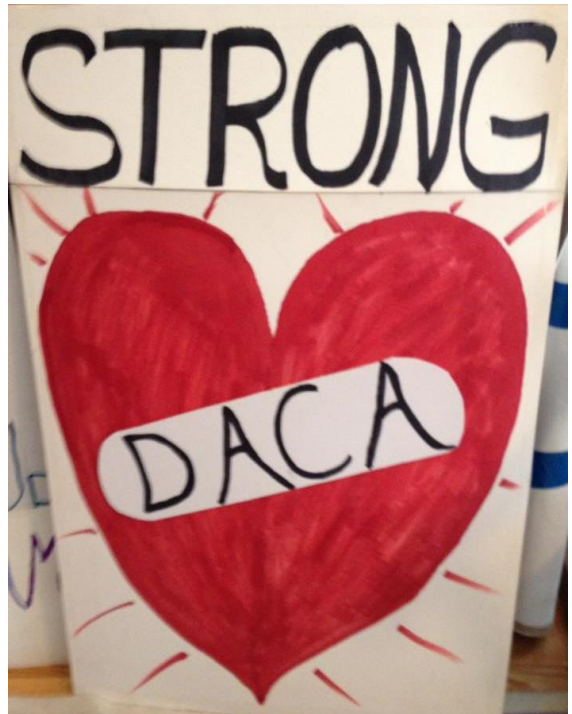 STRONG
DACA